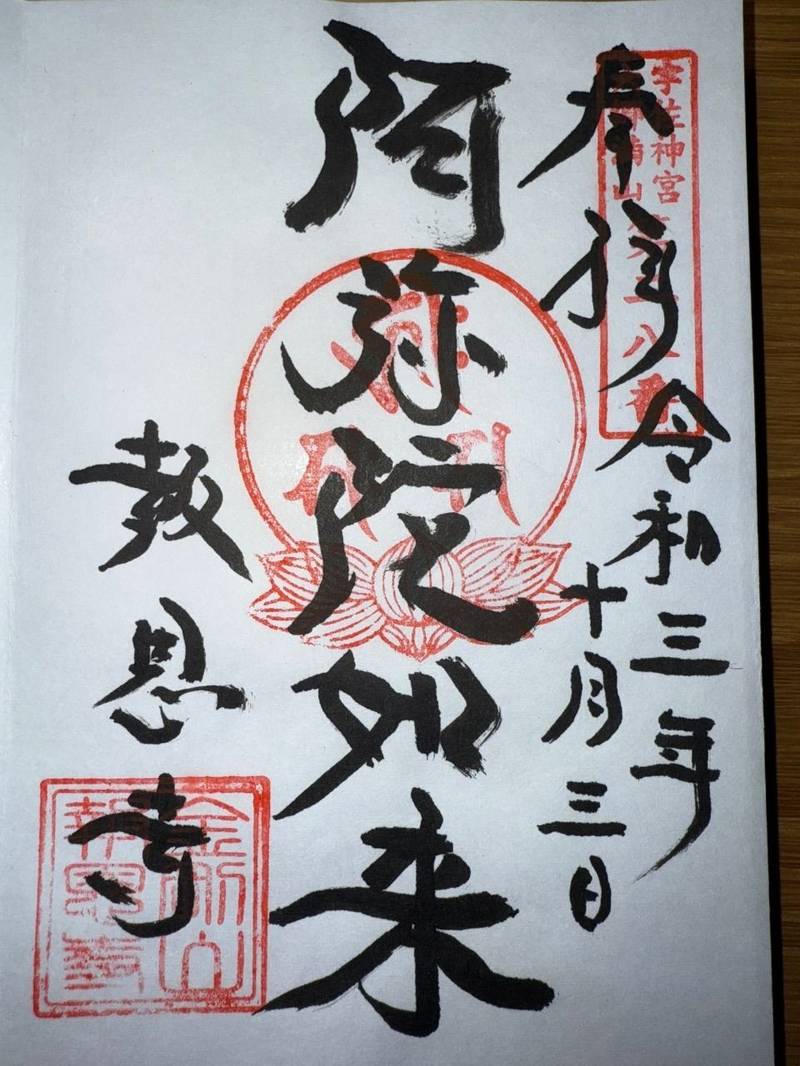 奉拝
令和三年
十月三日
阿弥陀如来
報恩寺
宇佐神宮
八番
金剛山
報恩寺